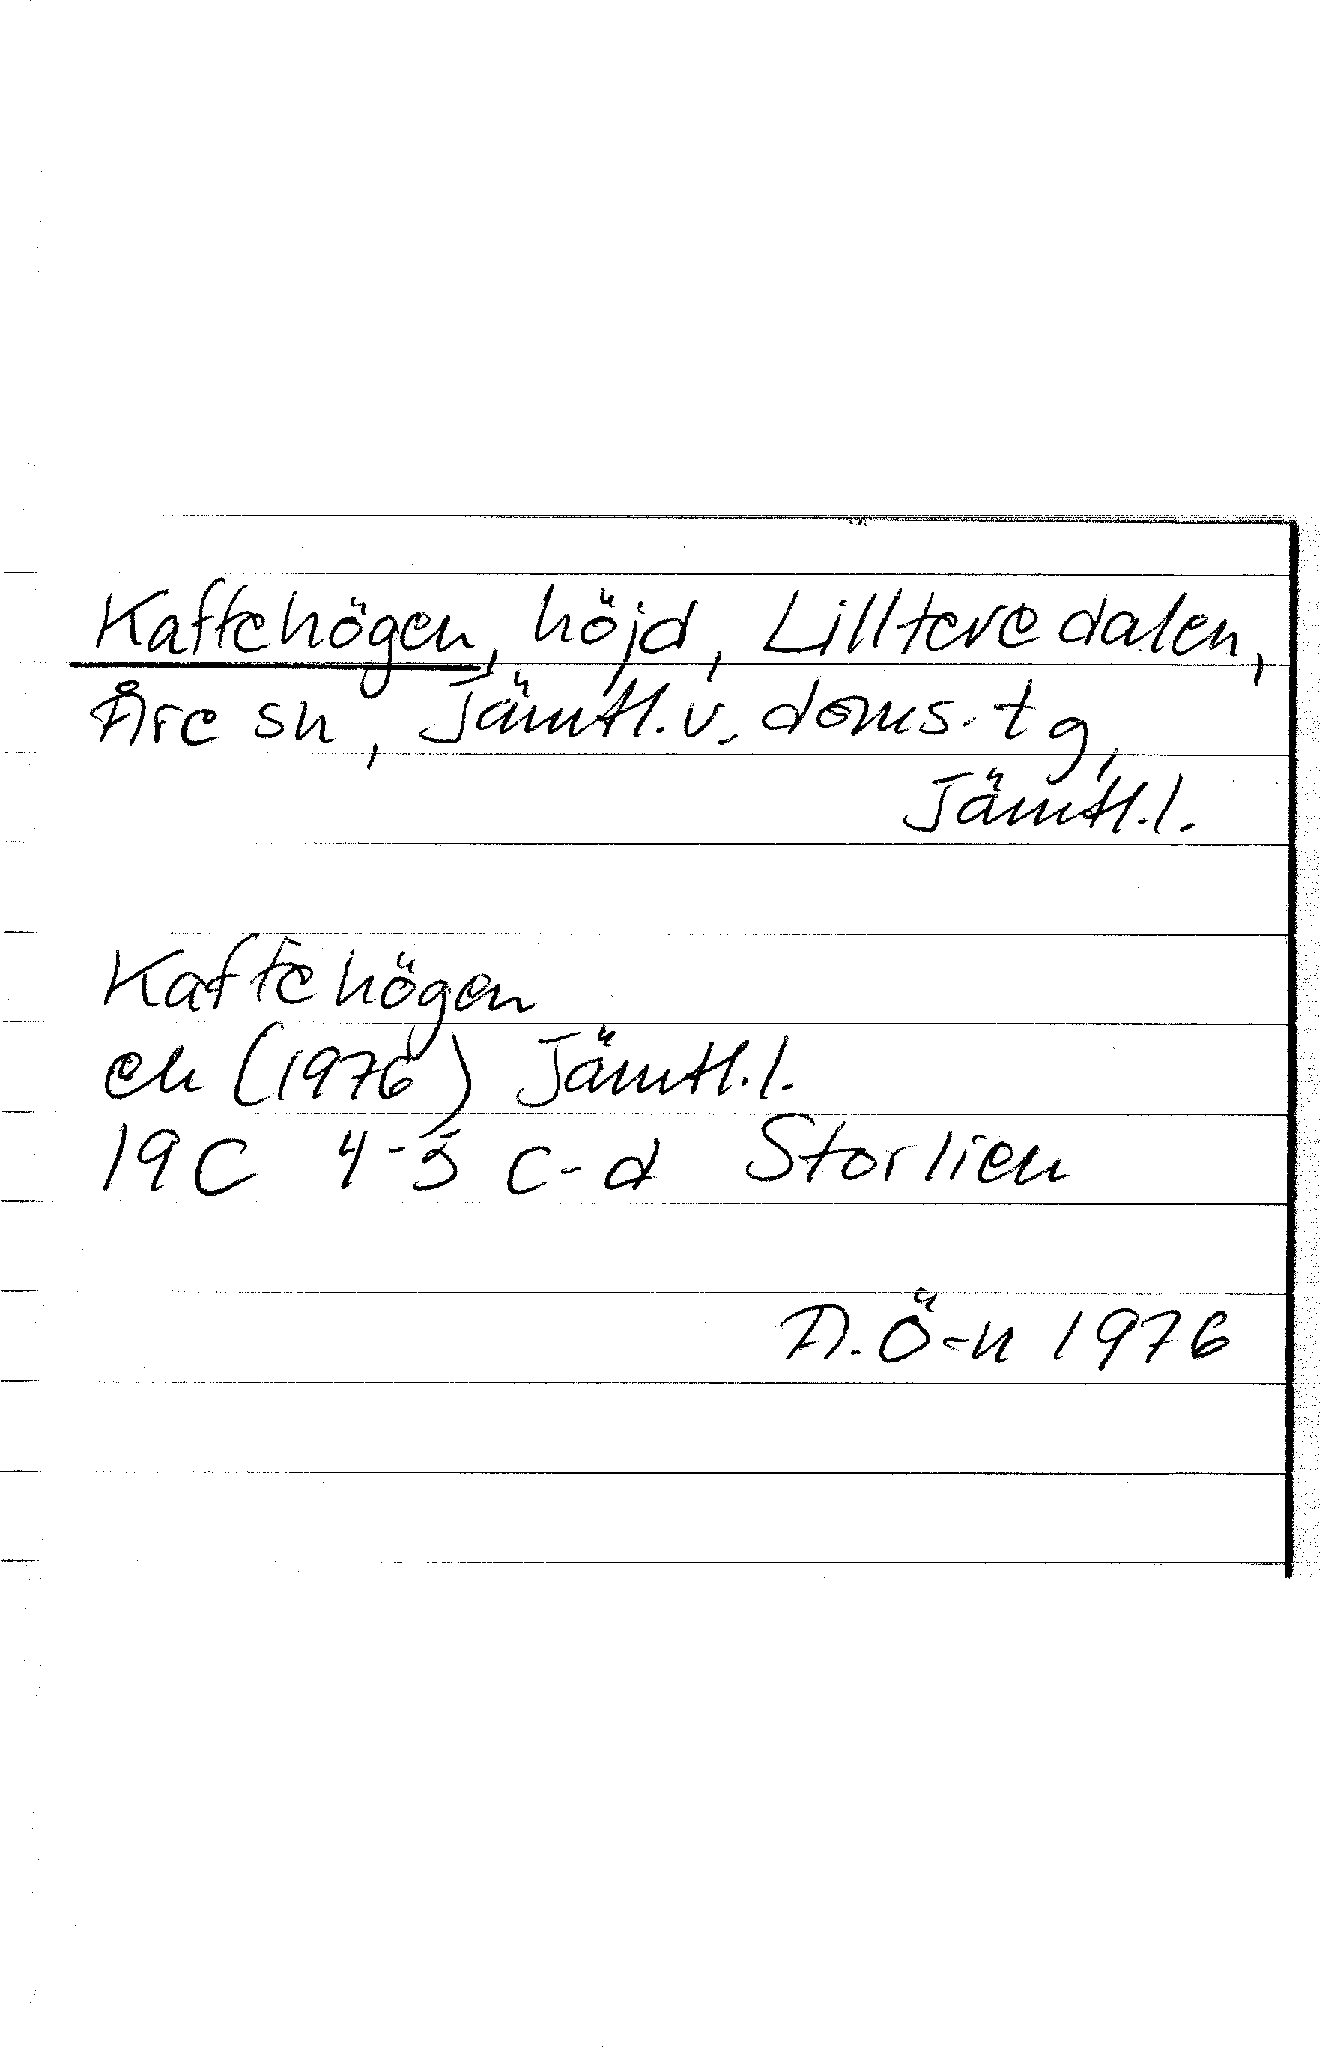 Kaffehögen, höjd, Lillteredalen,
Åre sn, Jämtl.v. doms.tg,
Jämtl.l.
Kaffehögen
ek (1976) Jämtl.l.
19C 4-5 c-d Storlien
A.Ö-n 1976